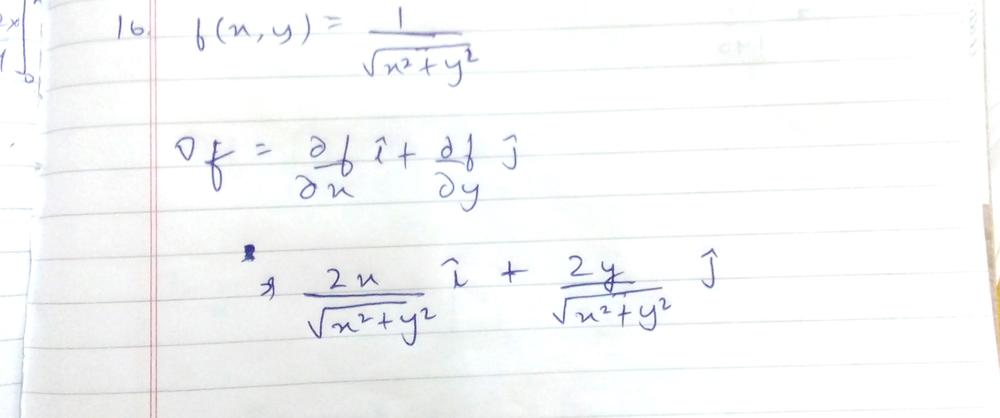 16. f(x, y) = 1/√(x² + y²)
∇f = ∂f/∂x î + ∂f/∂y ĵ
⇒ 2x/√(x² + y²) î + 2y/√(x² + y²) ĵ